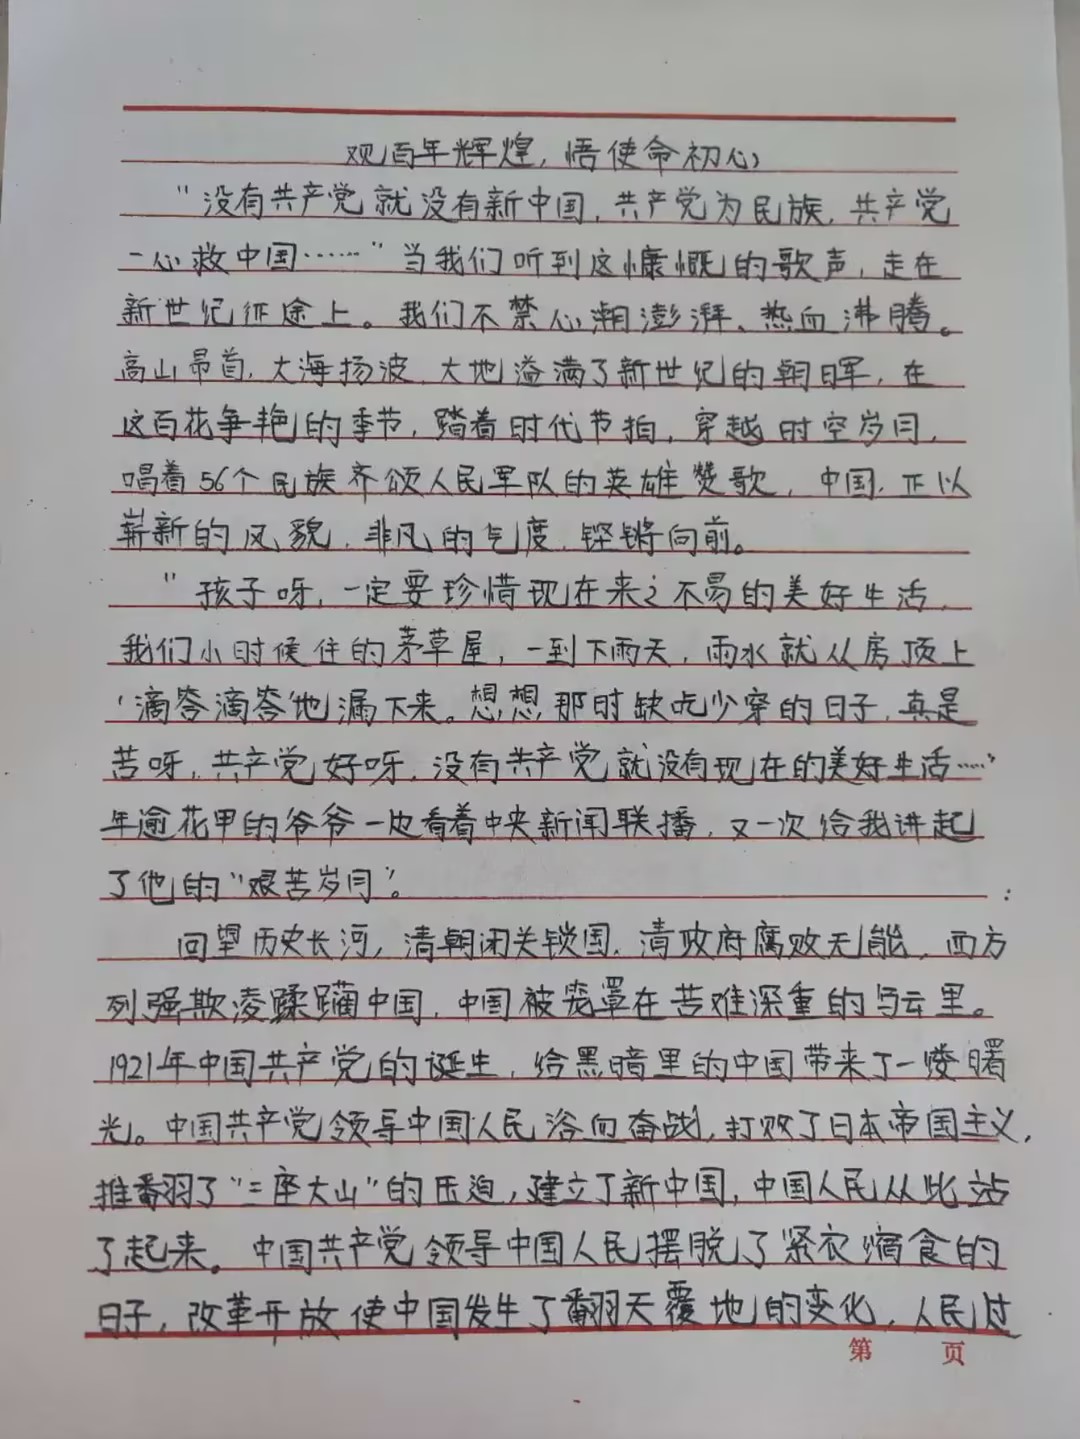 观百年辉煌，悟使命初心
"没有共产党就没有新中国，共产党为民族，共产党
一心救中国……"当我们听到这慷慨的歌声，走在
新世纪征途上。我们不禁心潮澎湃、热血沸腾。
高山昂首，大海扬波，大地溢满了新世纪的朝晖，在
这百花争艳的季节，踏着时代节拍，穿越时空岁月，
唱着56个民族齐颂人民军队的英雄赞歌，中国，正以
崭新的风貌，非凡的气度，铿锵向前。
"孩子呀，一定要珍惜现在来之不易的美好生活，
我们小时候住的茅草屋，一到下雨天，雨水就从房顶上
'滴答滴答'地漏下来。想想那时缺吃少穿的日子，真是
苦呀，共产党好呀，没有共产党就没有现在的美好生活……"
年逾花甲的爷爷一边看着中央新闻联播，又一次给我讲起
了他的"艰苦岁月"。
回望历史长河，清朝闭关锁国，清政府腐败无能，西方
列强欺凌蹂躏中国，中国被笼罩在苦难深重的乌云里。
1921年中国共产党的诞生，给黑暗里的中国带来了一缕曙
光。中国共产党领导中国人民浴血奋战，打败了日本帝国主义，
推翻了"三座大山"的压迫，建立了新中国，中国人民从此站
了起来。中国共产党领导中国人民摆脱了紧衣缩食的
日子，改革开放使中国发生了翻天覆地的变化，人民过
第 页